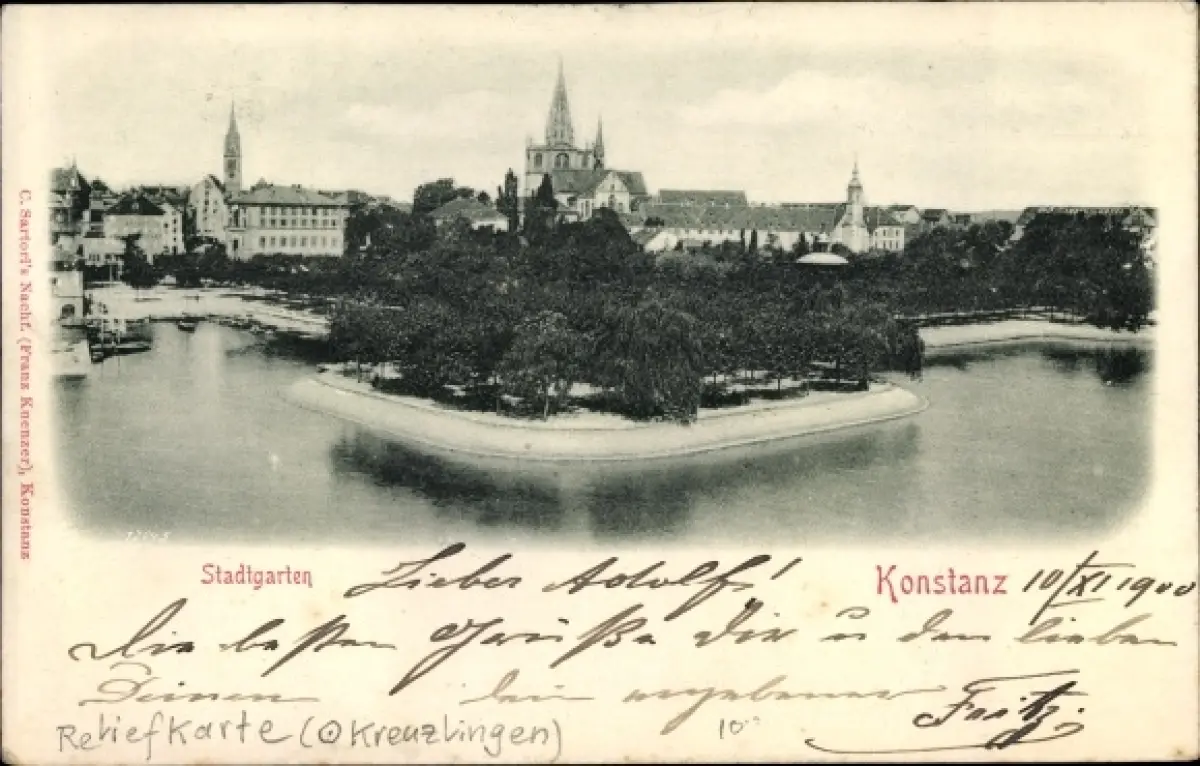 C. Sartori's Nachf. (Franz Knenzer), Konstanz
Stadtgarten
Konstanz 10/XI 1900
Lieber Adolf!
Die besten Grüße Dir u den lieben
Deinen dein ergebener Fritz.
Reliefkarte (⊙Kreuzlingen) 10